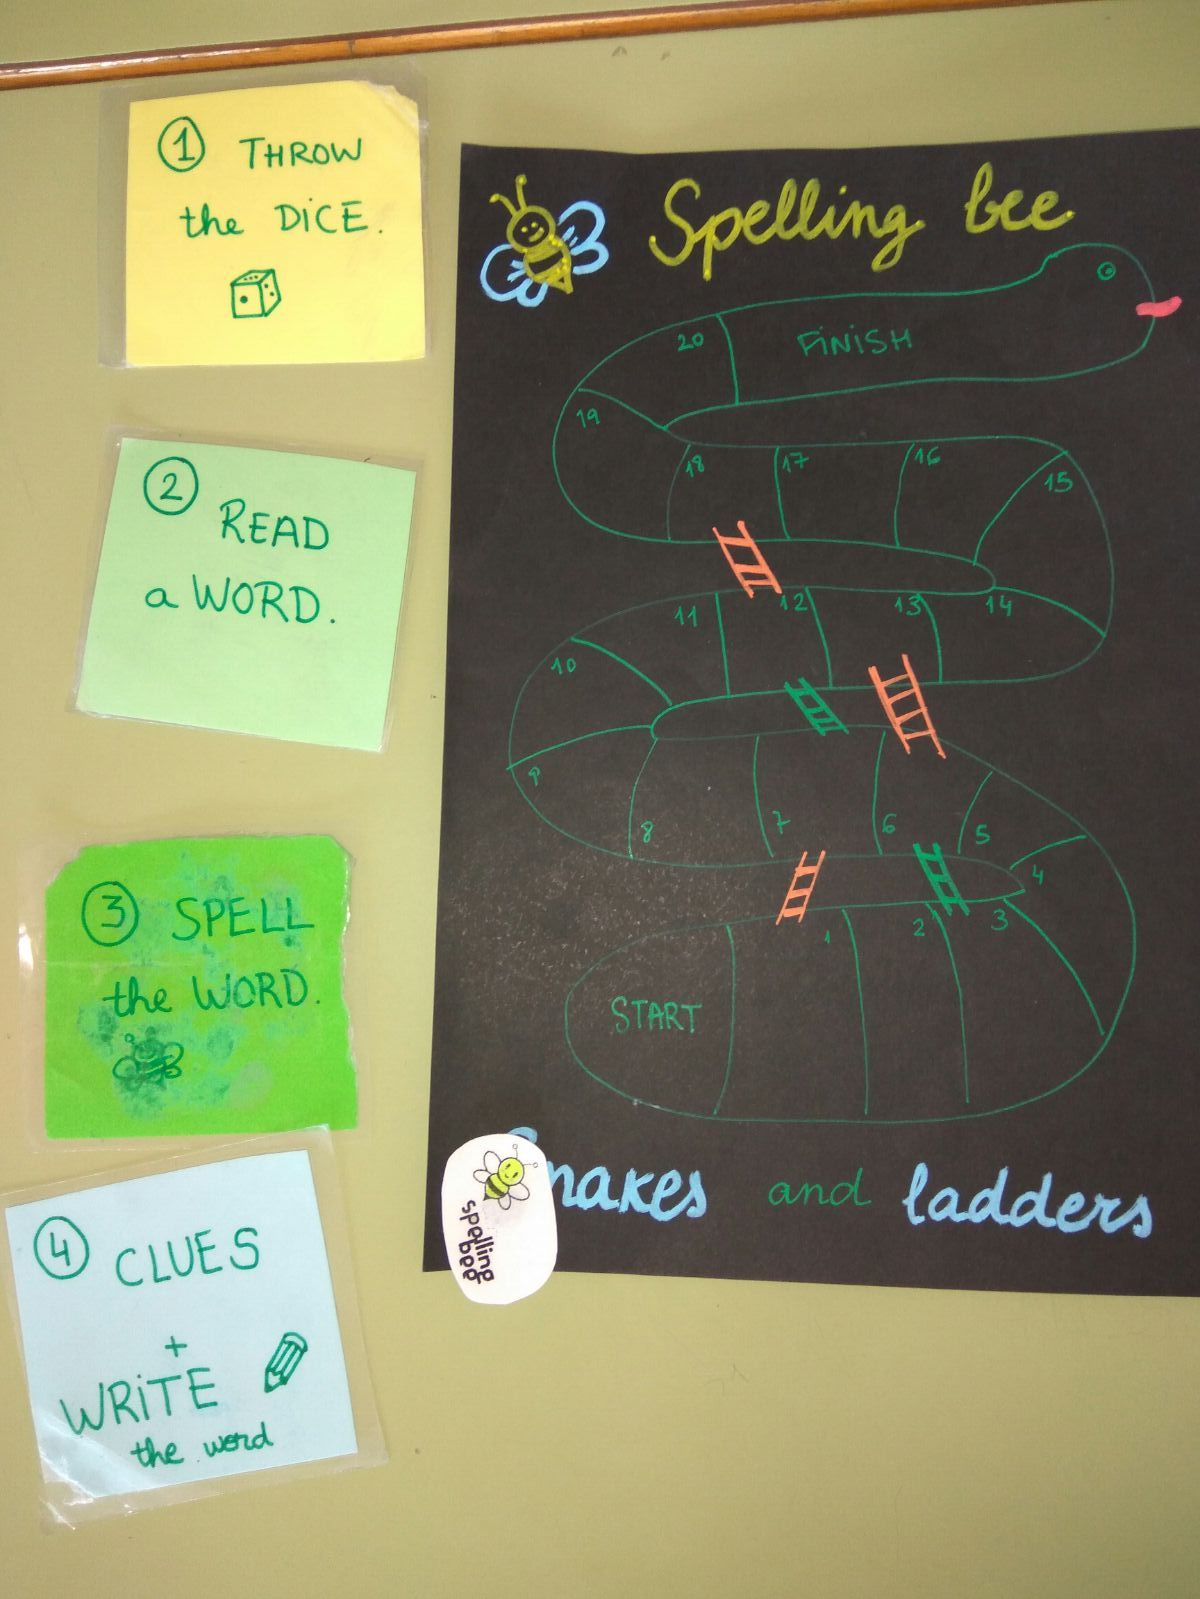 1 THROW
the DICE.
2 READ
a WORD.
3 SPELL
the WORD.
4 CLUES
+
WRiTE
the word
Spelling bee
20 FiNiSH
19
18 17 16 15
11 12 13 14
10
9
8 7 6 5
4
1 2 3
START
Snakes and ladders
spelling
bee